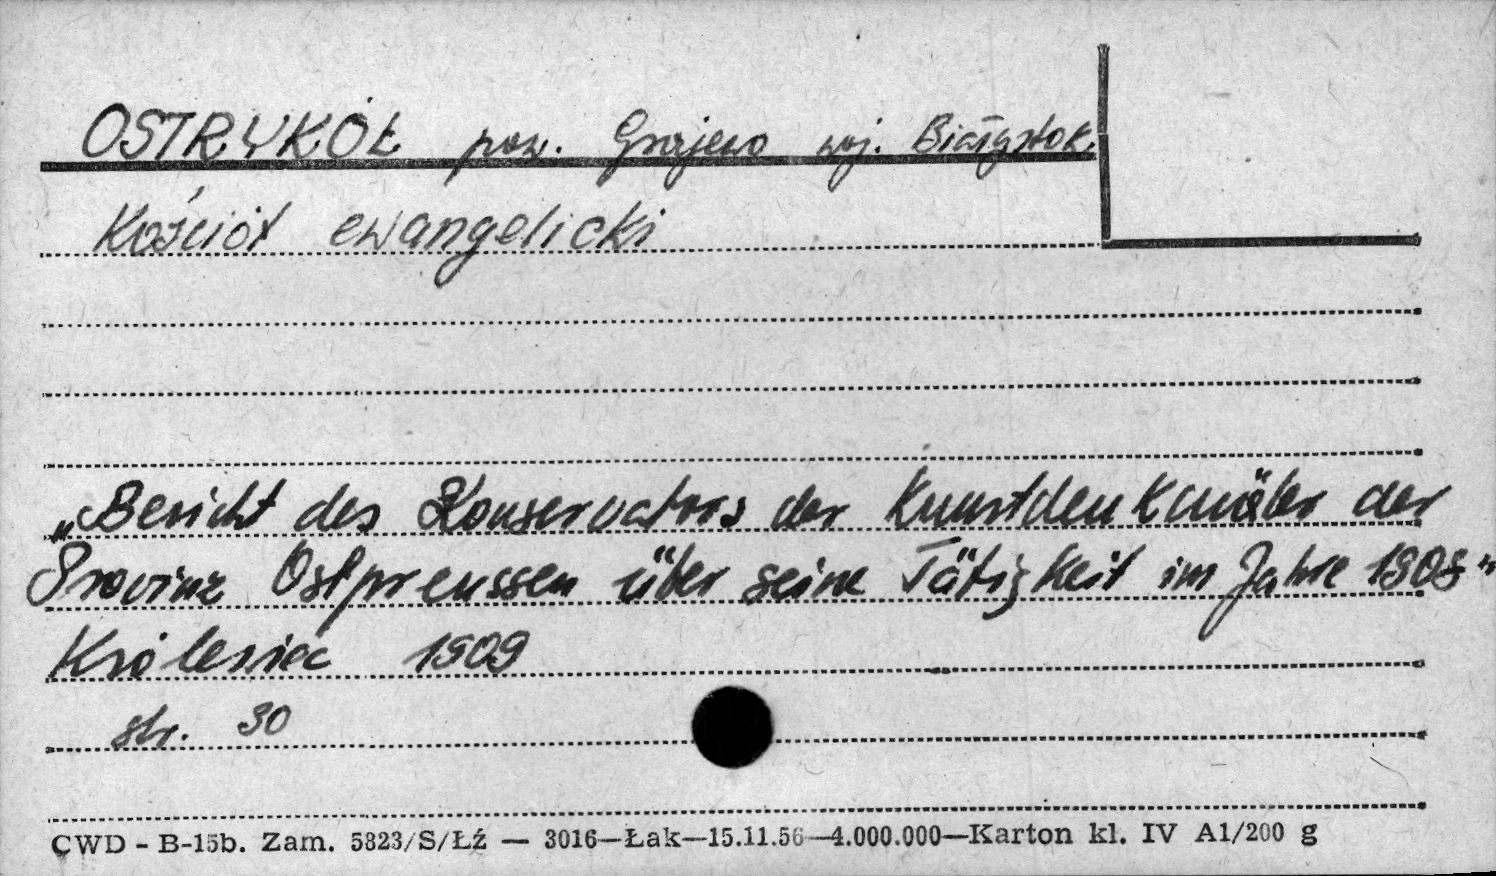 OSTRYKÓŁ pow. Grajewo woj. Białystok.
Kościół ewangelicki
„Bericht des Konservators der Kunstdenkmäler der
Provinz Ostpreussen über seine Tätigkeit im Jahre 1908"
Królewiec 1909
str. 30
CWD - B-15b. Zam. 5823/S/Łź — 3016—Łak—15.11.56—4.000.000—Karton kl. IV A1/200 g